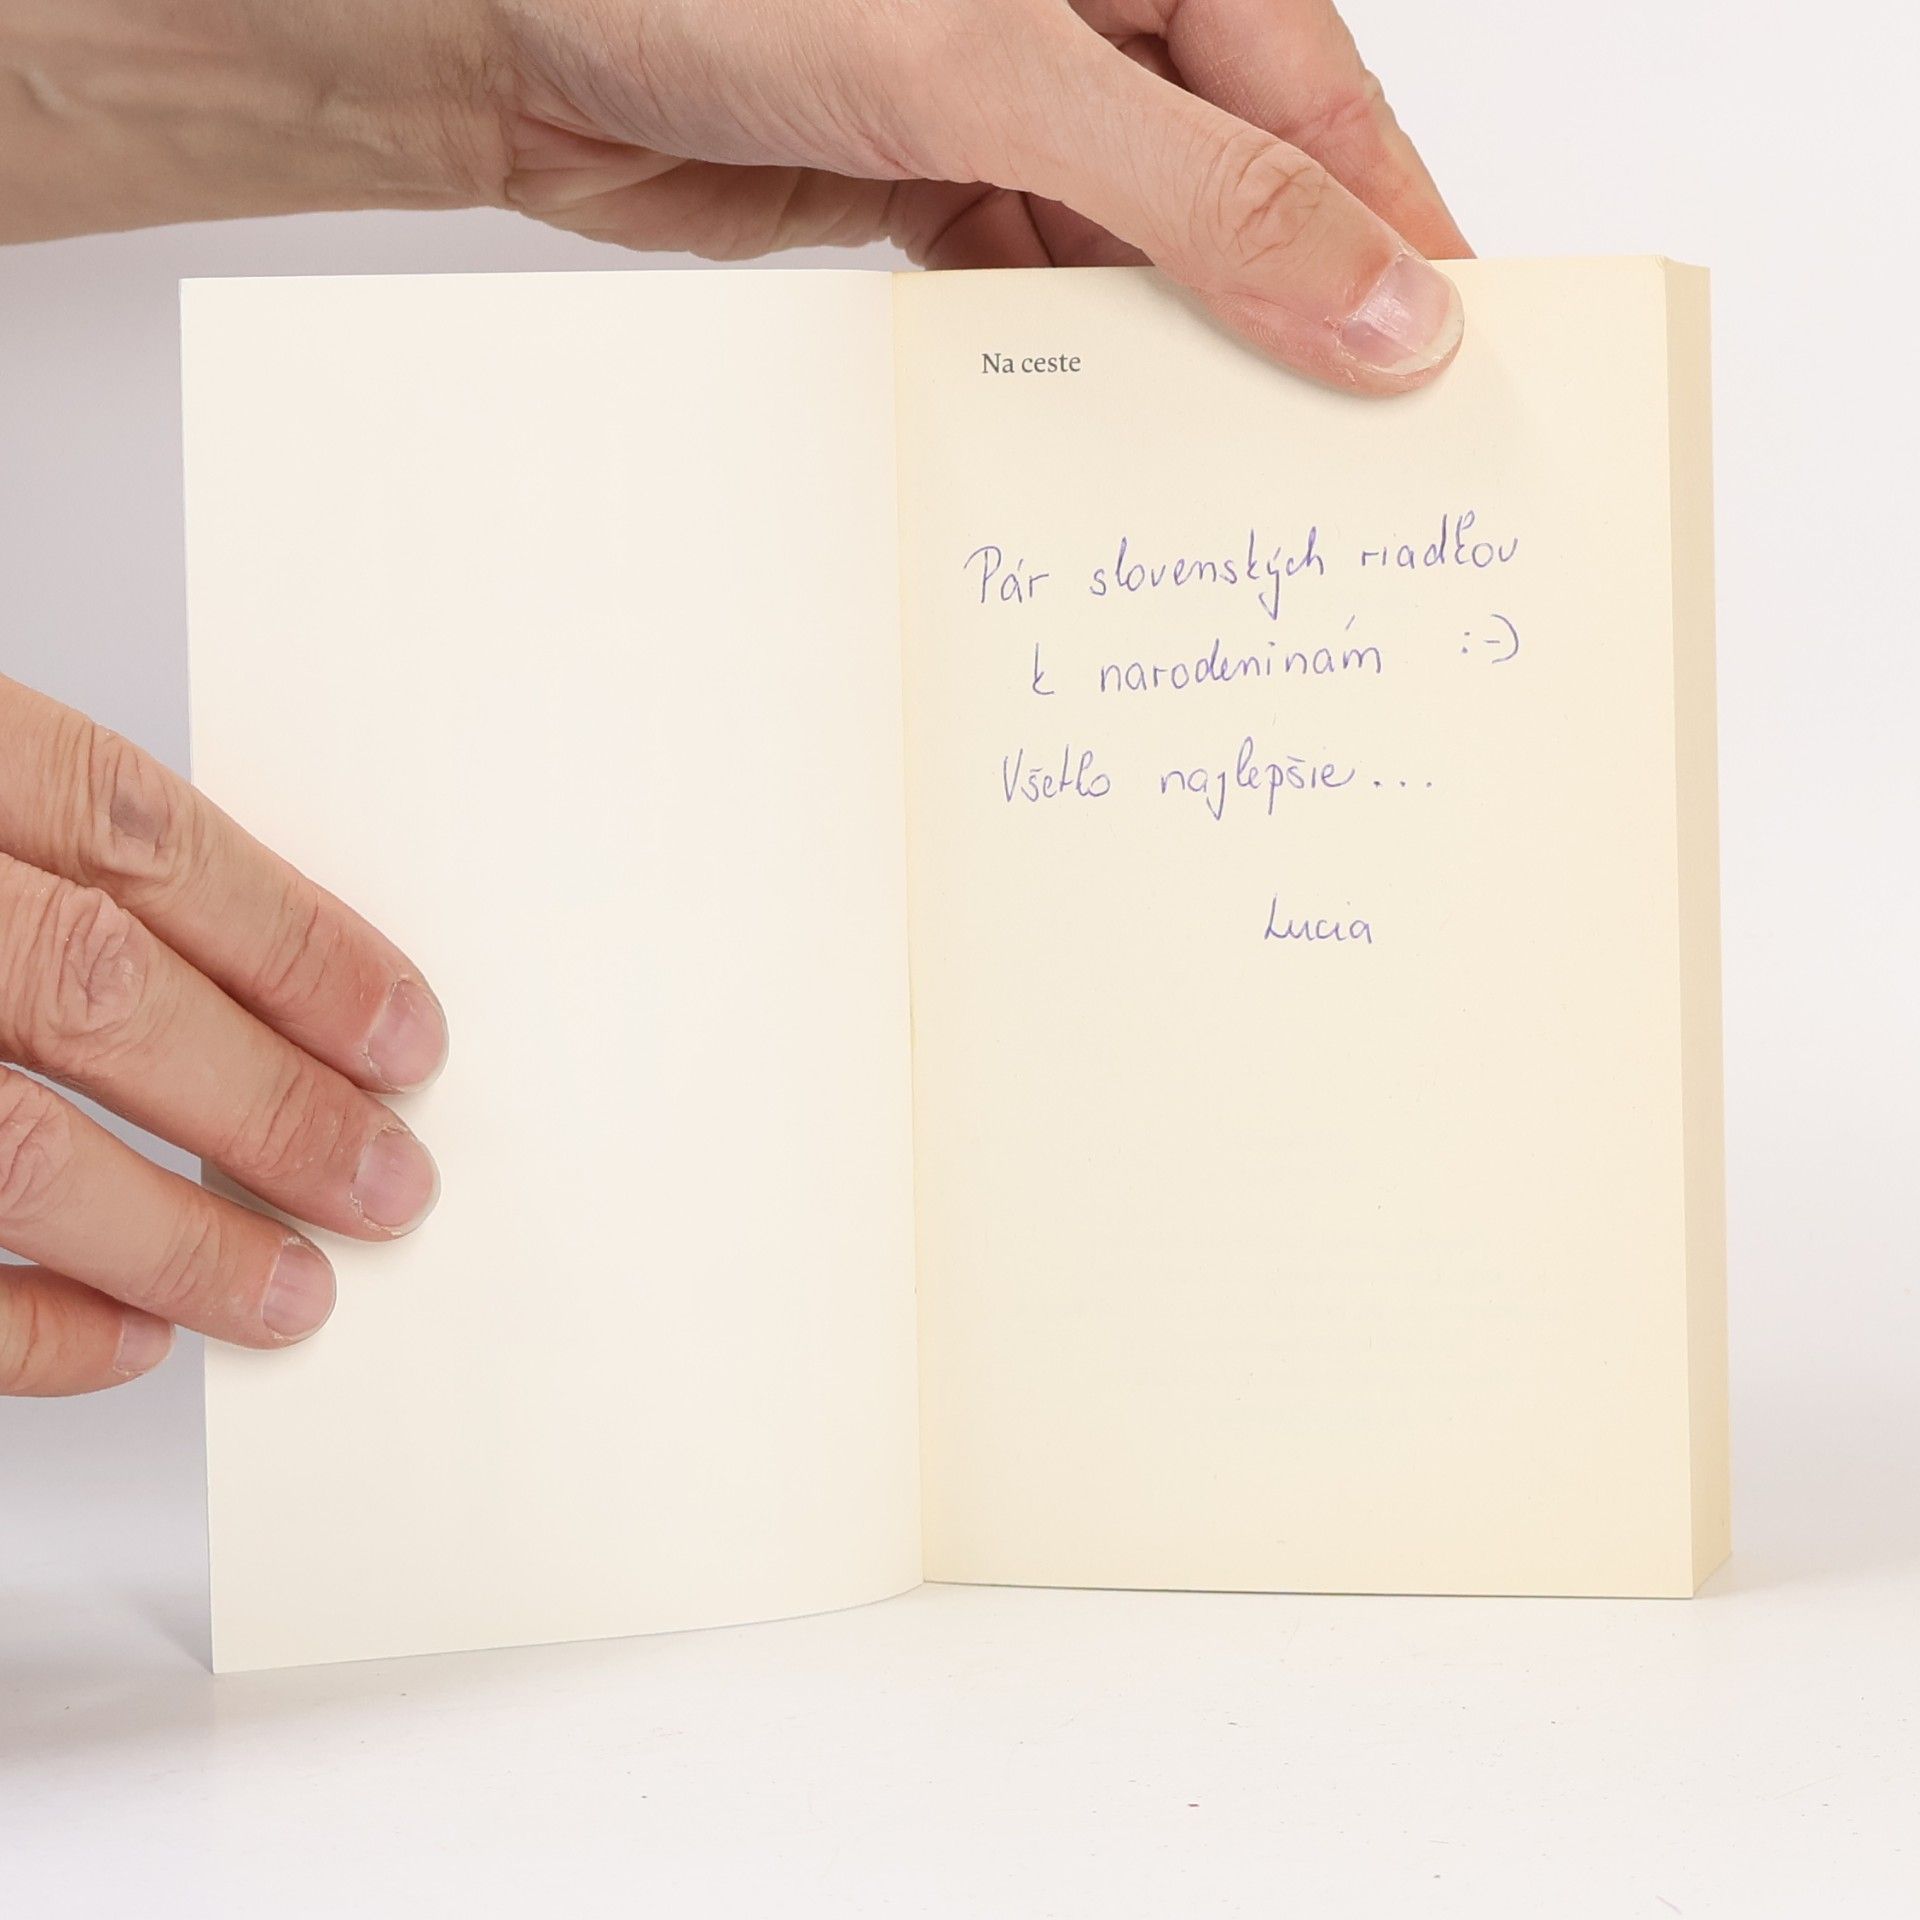 Na ceste
Pár slovenských riadkov
k narodeninám :-)
Všetko najlepšie...
Lucia